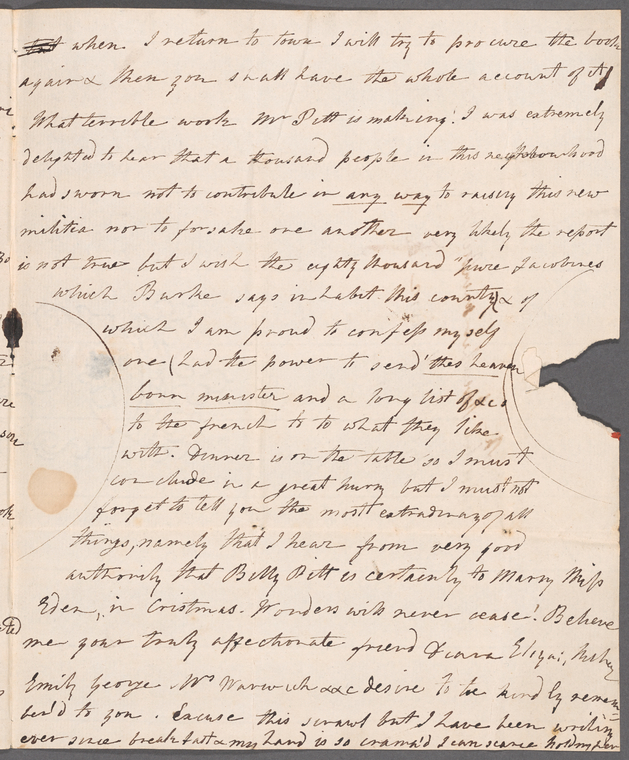 when. I return to town I will try to procure the book
again & then you shall have the whole account of it
What terrible work Mr Pitt is making! I was extremely
delighted to hear that a thousand people in this neighbourhood
had sworn not to contribute in any way to raising this new
militia nor to forsake one another very likely the report
is not true but I wish the eighty thousand "pure Jacobines
which Burke says inhabit this county (& of
which I am proud to confess myself
one (had the power to send this heaven
born minister and a long list of &cs
to the french to to what they like
with. Dinner is on the table so I must
conclude in a great hurry but I must not
forget to tell you the most extradinary of all
things, namely that I hear from very good
authority that Billy Pitt is certainly to Marry Miss
Eden, in Cristmas. Wonders will never cease! Believe
me your truly affectionate friend Eliza:
Emily George Mrs Warwick &&c desire to be kindly remem=
ber'd to you. Excuse this scrawl but I have been writing
ever since breakfast & my hand is so cramp'd I can scarce hold my pen